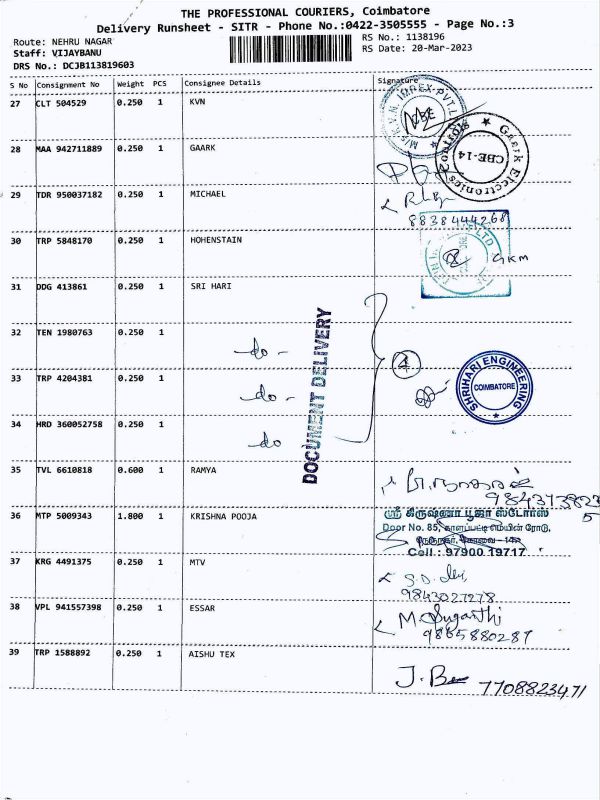 THE PROFESSIONAL COURIERS, Coimbatore
Delivery Runsheet - SITR - Phone No.:0422-3505555 - Page No.:3
Route: NEHRU NAGAR
Staff: VIJAYBANU
DRS No.: DCJB113819603
RS No.: 1138196
RS Date: 20-Mar-2023
S No Consignment No Weight PCS Consignee Details Signature
27 CLT 504529 0.250 1 KVN
28 MAA 942711889 0.250 1 GAARK
Gaark Electronics Controls CBE-14
29 TDR 950037182 0.250 1 MICHAEL
8838444268
30 TRP 5848170 0.250 1 HOHENSTAIN
GKM
31 DDG 413861 0.250 1 SRI HARI
32 TEN 1980763 0.250 1 -do-
33 TRP 4204381 0.250 1 -do-
34 HRD 360052758 0.250 1 -do
DOCUMENT DELIVERY
4
SHRIHARI ENGINEERING
COIMBATORE
35 TVL 6610818 0.600 1 RAMYA
36 MTP 5009343 1.800 1 KRISHNA POOJA
ஸ்ரீ கிருஷ்ணா பூஜா ஸ்டோர்ஸ்
Door No. 85, காளப்பட்டி மெயின் ரோடு,
Cell : 97900 19717
37 KRG 4491375 0.250 1 MTV
S.D. devi
9843027278
38 VPL 941557398 0.250 1 ESSAR
M. Suganthi
9865880287
39 TRP 1588892 0.250 1 AISHU TEX
7708823471